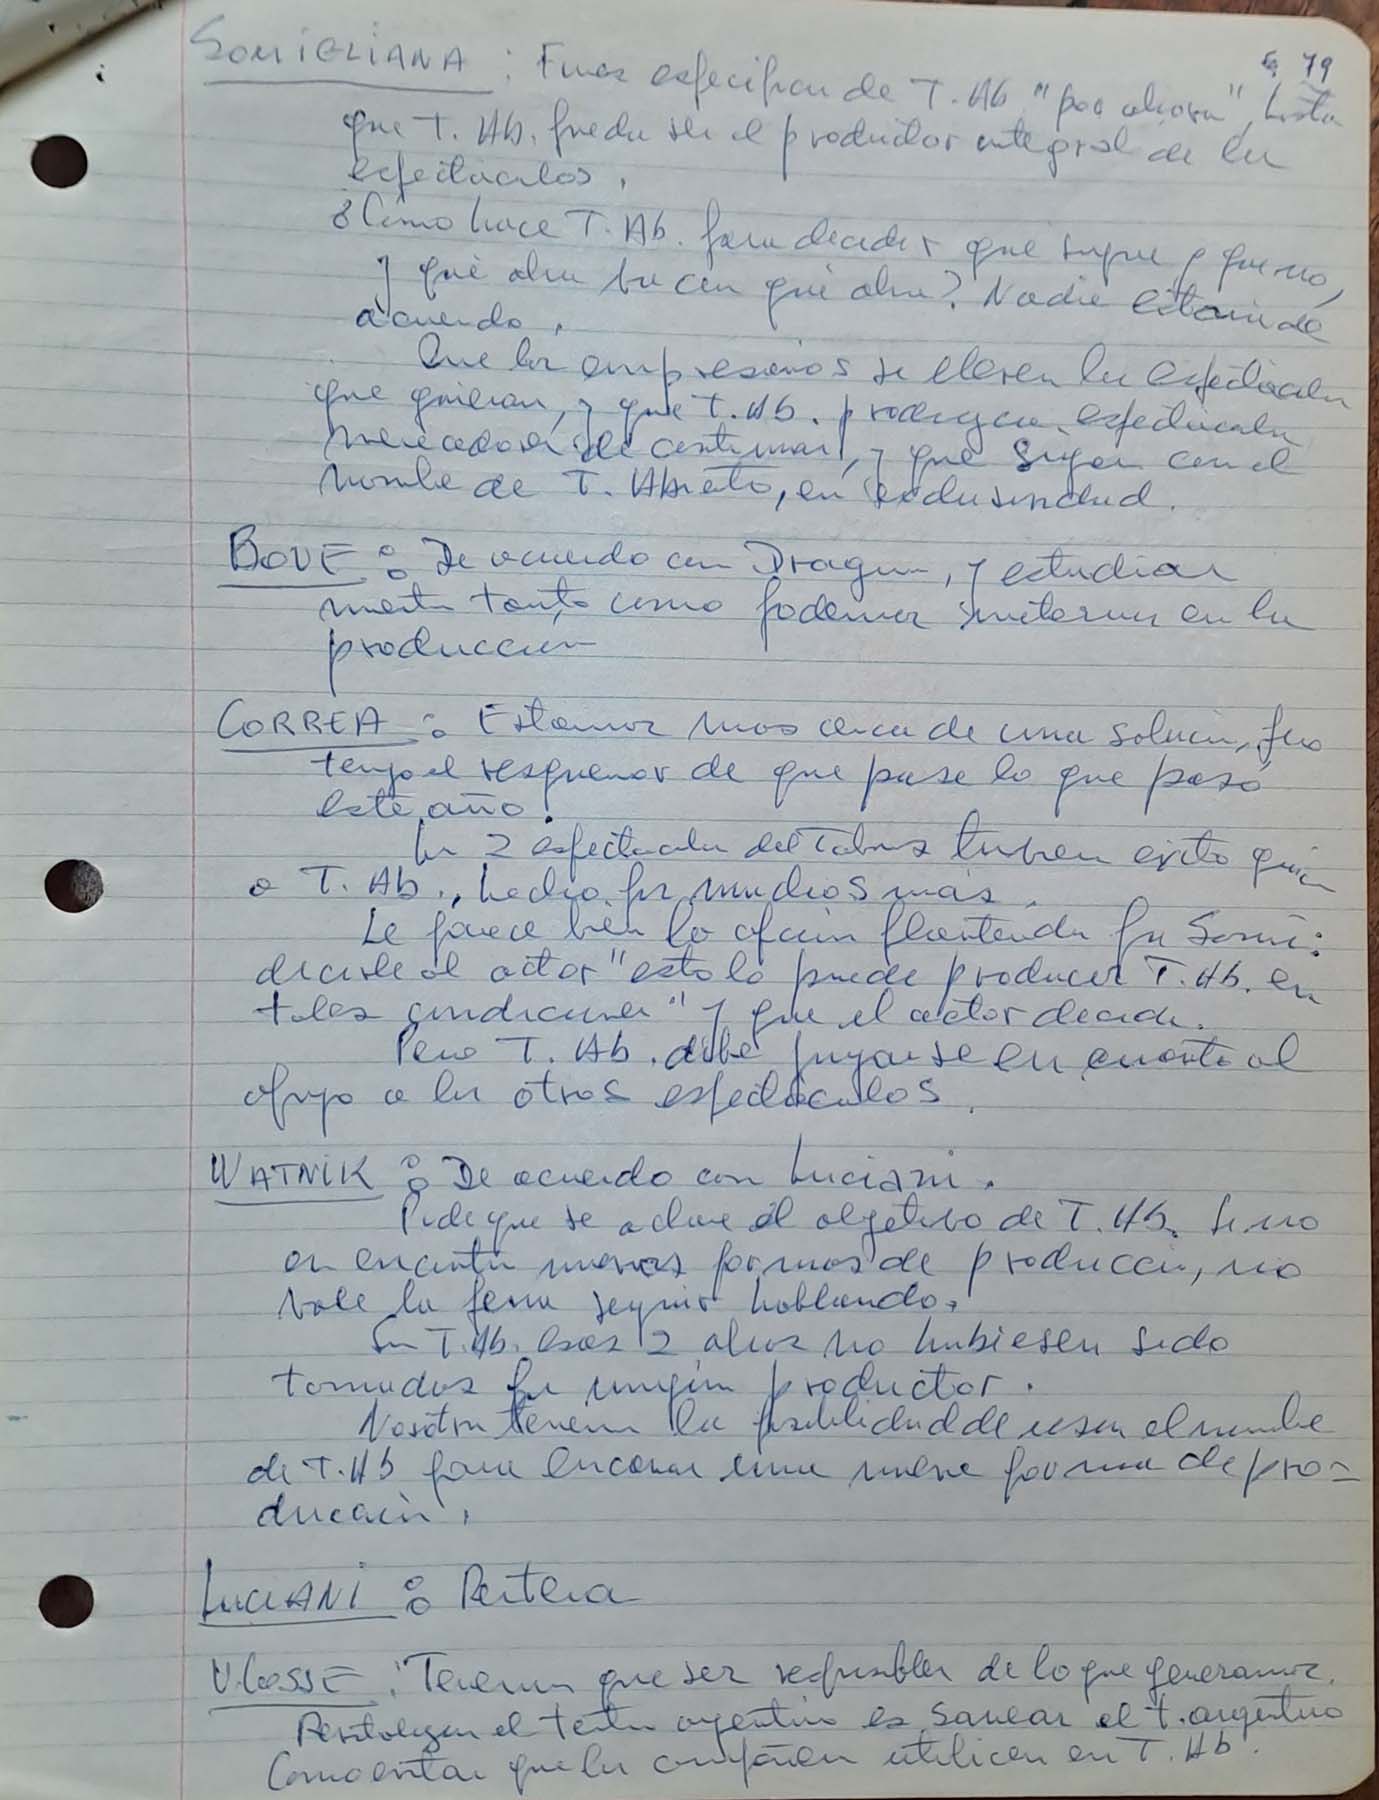 79
SOMIGLIANA : Fines específicos de T. Ab "por ahora", hasta
que T. Ab. pueda ser el productor integral de los
espectáculos.
¿Cómo hace T. Ab. para decidir qué sigue y que no,
y qué obra va con qué obra? Nadie estaría de
acuerdo.
Que los empresarios se lleven los espectáculos
que quieran, y que T. Ab. produzca espectáculos
merecedores de continuar, y que sigan con el
nombre de T. Abierto, en exclusividad.
BOVE : De acuerdo con Dragun, y estudiar
mientras tanto como podemos meternos en la
produccion
CORREA : Estamos mas cerca de una solución, pero
tengo el resquemor de que pase lo que pasó
este año.
Los 2 espectaculos del Tabaris tuvieron exito gracias
a T. Ab., hecho por muchos más.
Le parece bien la opción planteada por Somi:
decirle al actor "esto lo puede producir T. Ab. en
tales condiciones" y que el actor decida.
Pero T. Ab. debe jugarse en cuanto al
apoyo a los otros espectáculos.
WATNIK : De acuerdo con Luciani.
Pide que se aclare el objetivo de T. Ab. Si no
encuentra nuevas formas de producción, no
vale la pena seguir hablando.
Sin T. Ab. esas 2 obras no hubiesen sido
tomadas por ningún productor.
Nosotros tenemos la posibilidad de usar el nombre
de T. Ab para encarar una nueva forma de pro=
ducción.
LUCIANI :
ULOSSE : Tenemos que ser responsables de lo que generamos.
el teatro argentino es sanear el t. argentino
que los utilicen en T. Ab.